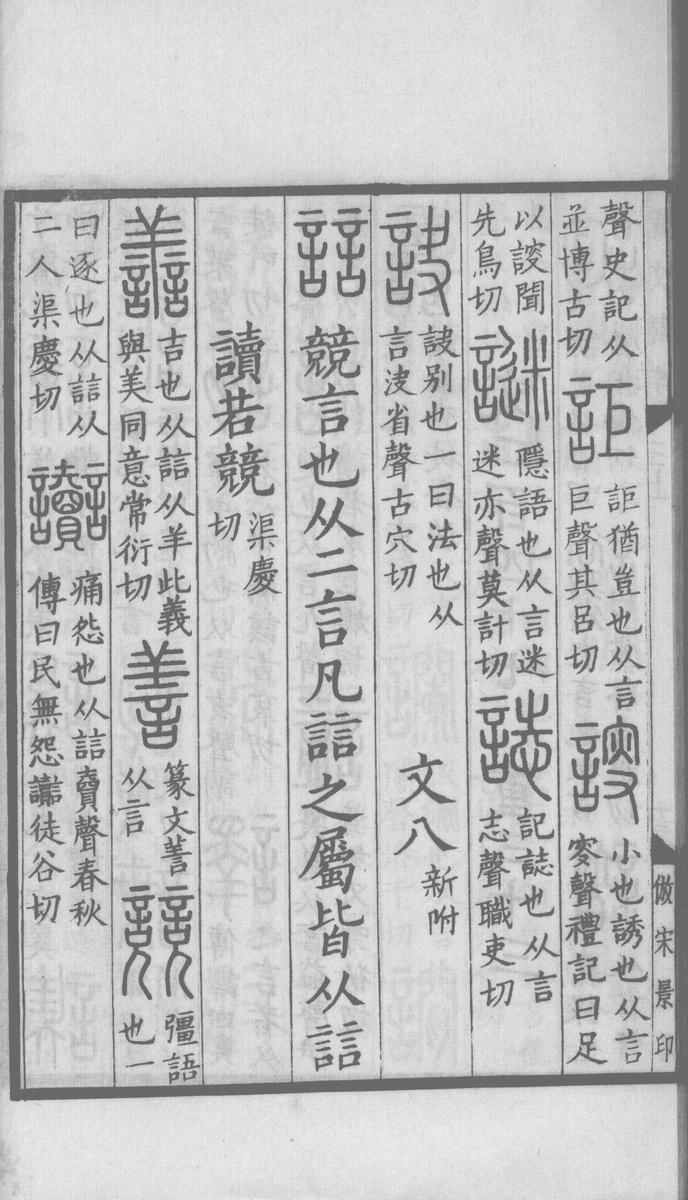 聲史記从
並博古切
詎
詎猶豈也从言
巨聲其呂切
謏
小也誘也从言
叜聲禮記曰足
以謏聞
先鳥切
謎
隱語也从言迷
迷亦聲莫計切
誌
記誌也从言
志聲職吏切
訣
訣别也一曰法也从
言決省聲古穴切
文八新附
誩
競言也从二言凡誩之屬皆从誩
讀若競
渠慶
切
譱
吉也从誩从羊此義
與美同意常衍切
善
篆文譱
从言
競
彊語
也一
曰逐也从誩从
二人渠慶切
讟
痛怨也从誩𧶠聲春秋
傳曰民無怨讟徒谷切
倣宋景印